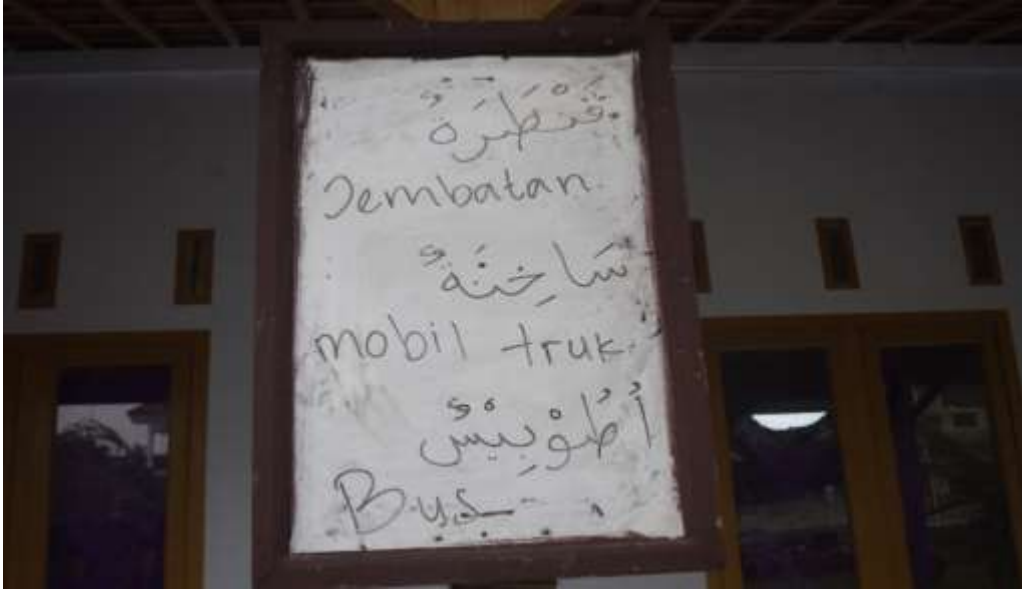 قَنْطَرَةٌ
Jembatan.
سَاخِنَةٌ
mobil truk.
أُطُوْبِيْسٌ
Bus